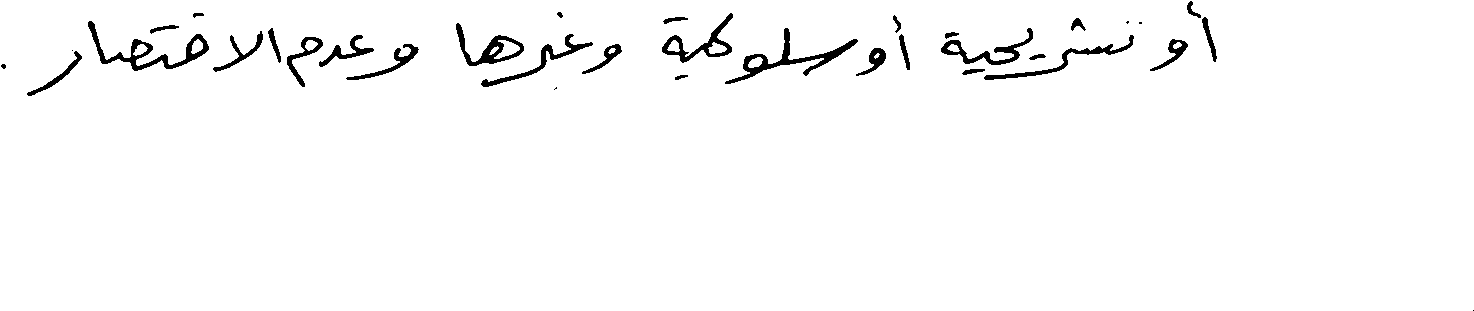 أو تشريحية أو سلوكية وغيرها وعدم الاقتصار .